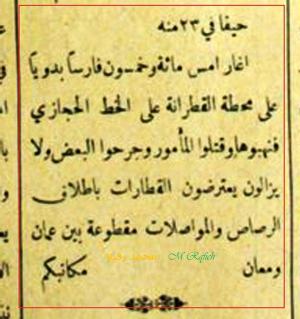 حيفا في ٢٣ منه
اغار امس مائة وخمسون فارساً بدوياً
على محطة القطرانة على الخط الحجازي
فنهبوها وقتلوا المأمور وجرحوا البعض ولا
يزالون يعترضون القطارات باطلاق
الرصاص والمواصلات مقطوعة بين عمان
ومعان مكاتبكم
M Rafieh